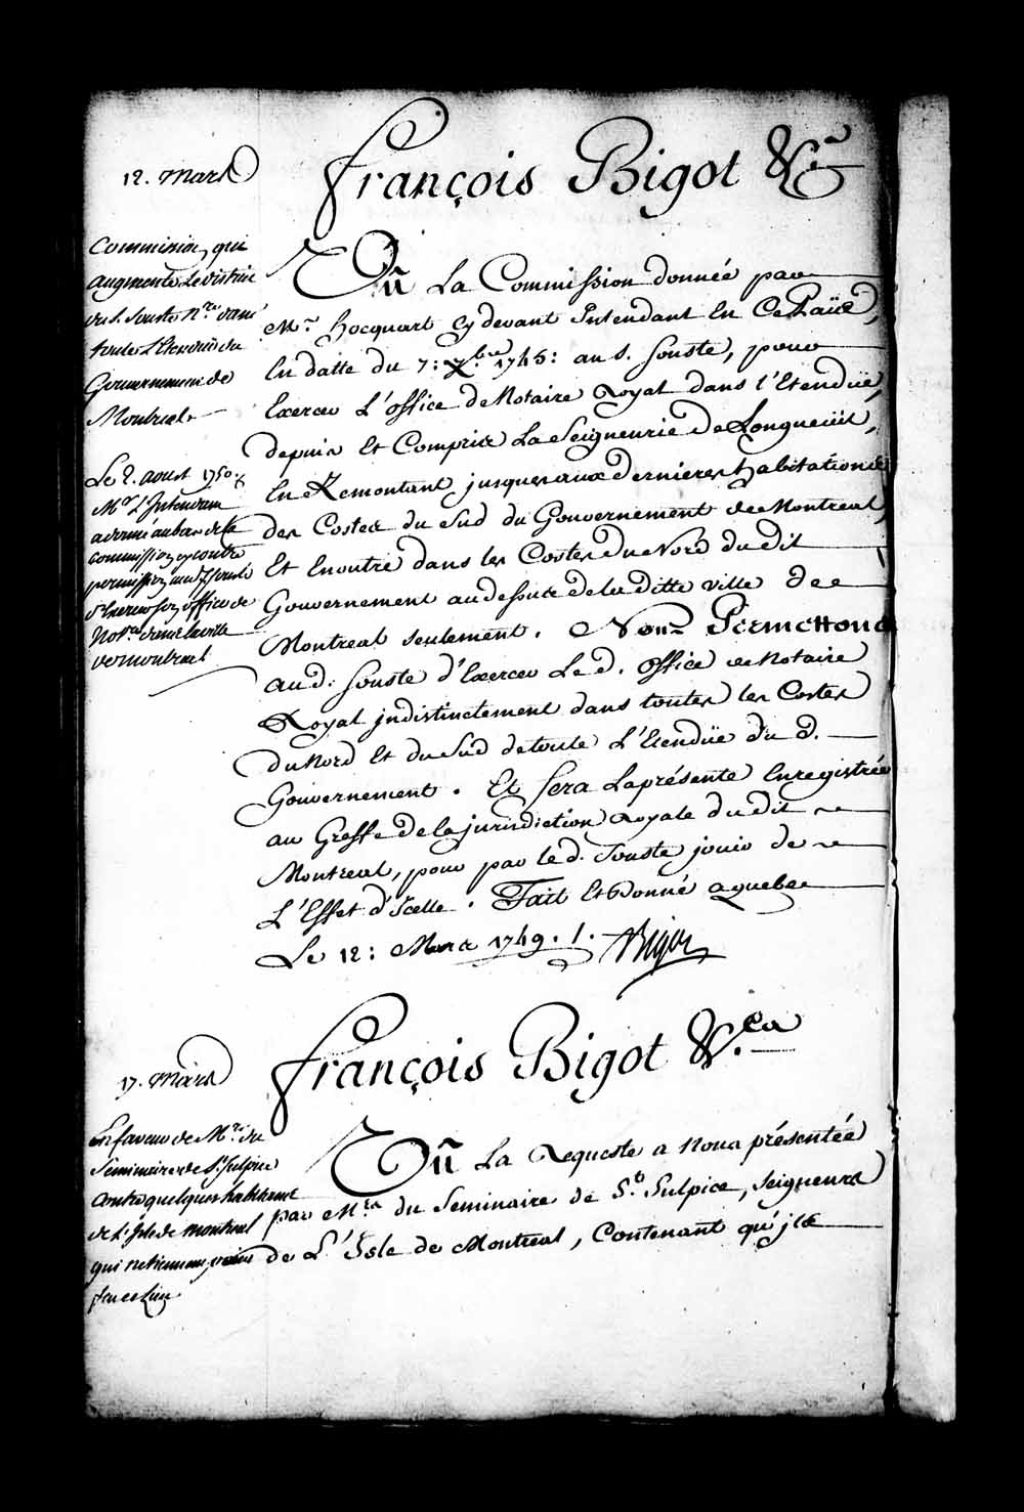 12. Mars
François Bigot &c.ª
Commission, qui
augmente Le district
du S. Souste N.re dans
toute L'Etendüe du
Gouvernement de
Montreal.
Le 2. aoust 1750.
M.r L'Intendant
a donné au bas de la
commission cy contre
permission aud. S. Souste
d'Exercer son office de
Not.re dans la ville
de Montreal
Vû La Commission donnée par
M.r hocquart cy devant Intendant En Ce Païs,
En datte du 7: 7.bre 1745: au S. Souste, pour
Exercer L'office de Notaire Royal dans l'Etendüe,
depuis Et Compris La Seigneurie De Longueüil,
En Remontant jusques aux Dernieres habitations
des Costes du Sud du Gouvernement de Montreal,
Et Enoutre dans les Costes du Nord du dit
Gouvernement audessus de la ditte ville de
Montreal seulement. Nous Permettons
au d: Souste d'Exercer Le d. office de Notaire
Royal jndistinctement dans toutes les Costes
du Nord Et du Sud de toute L'Etendüe du d.
Gouvernement. Et Sera La présente Enregistrée
au Greffe de la jurisdiction Royale du dit
Montreal, pour par le d. Souste jouir de
L'Effet d'Icelle. Fait Et Donné a quebec
Le 12: Mars 1749. /. Bigot
17. Mars
François Bigot &.ca
En faveur de M.rs du
Seminaire de S.t Sulpice
Contre quelques habitans
de L'Isle de Montreal
qui retiennent
Vû La Requeste a Nous présentée
par M.rs du Seminaire de S.t Sulpice, Seigneurs
de L'Isle de Montreal, Contenant qu'jls